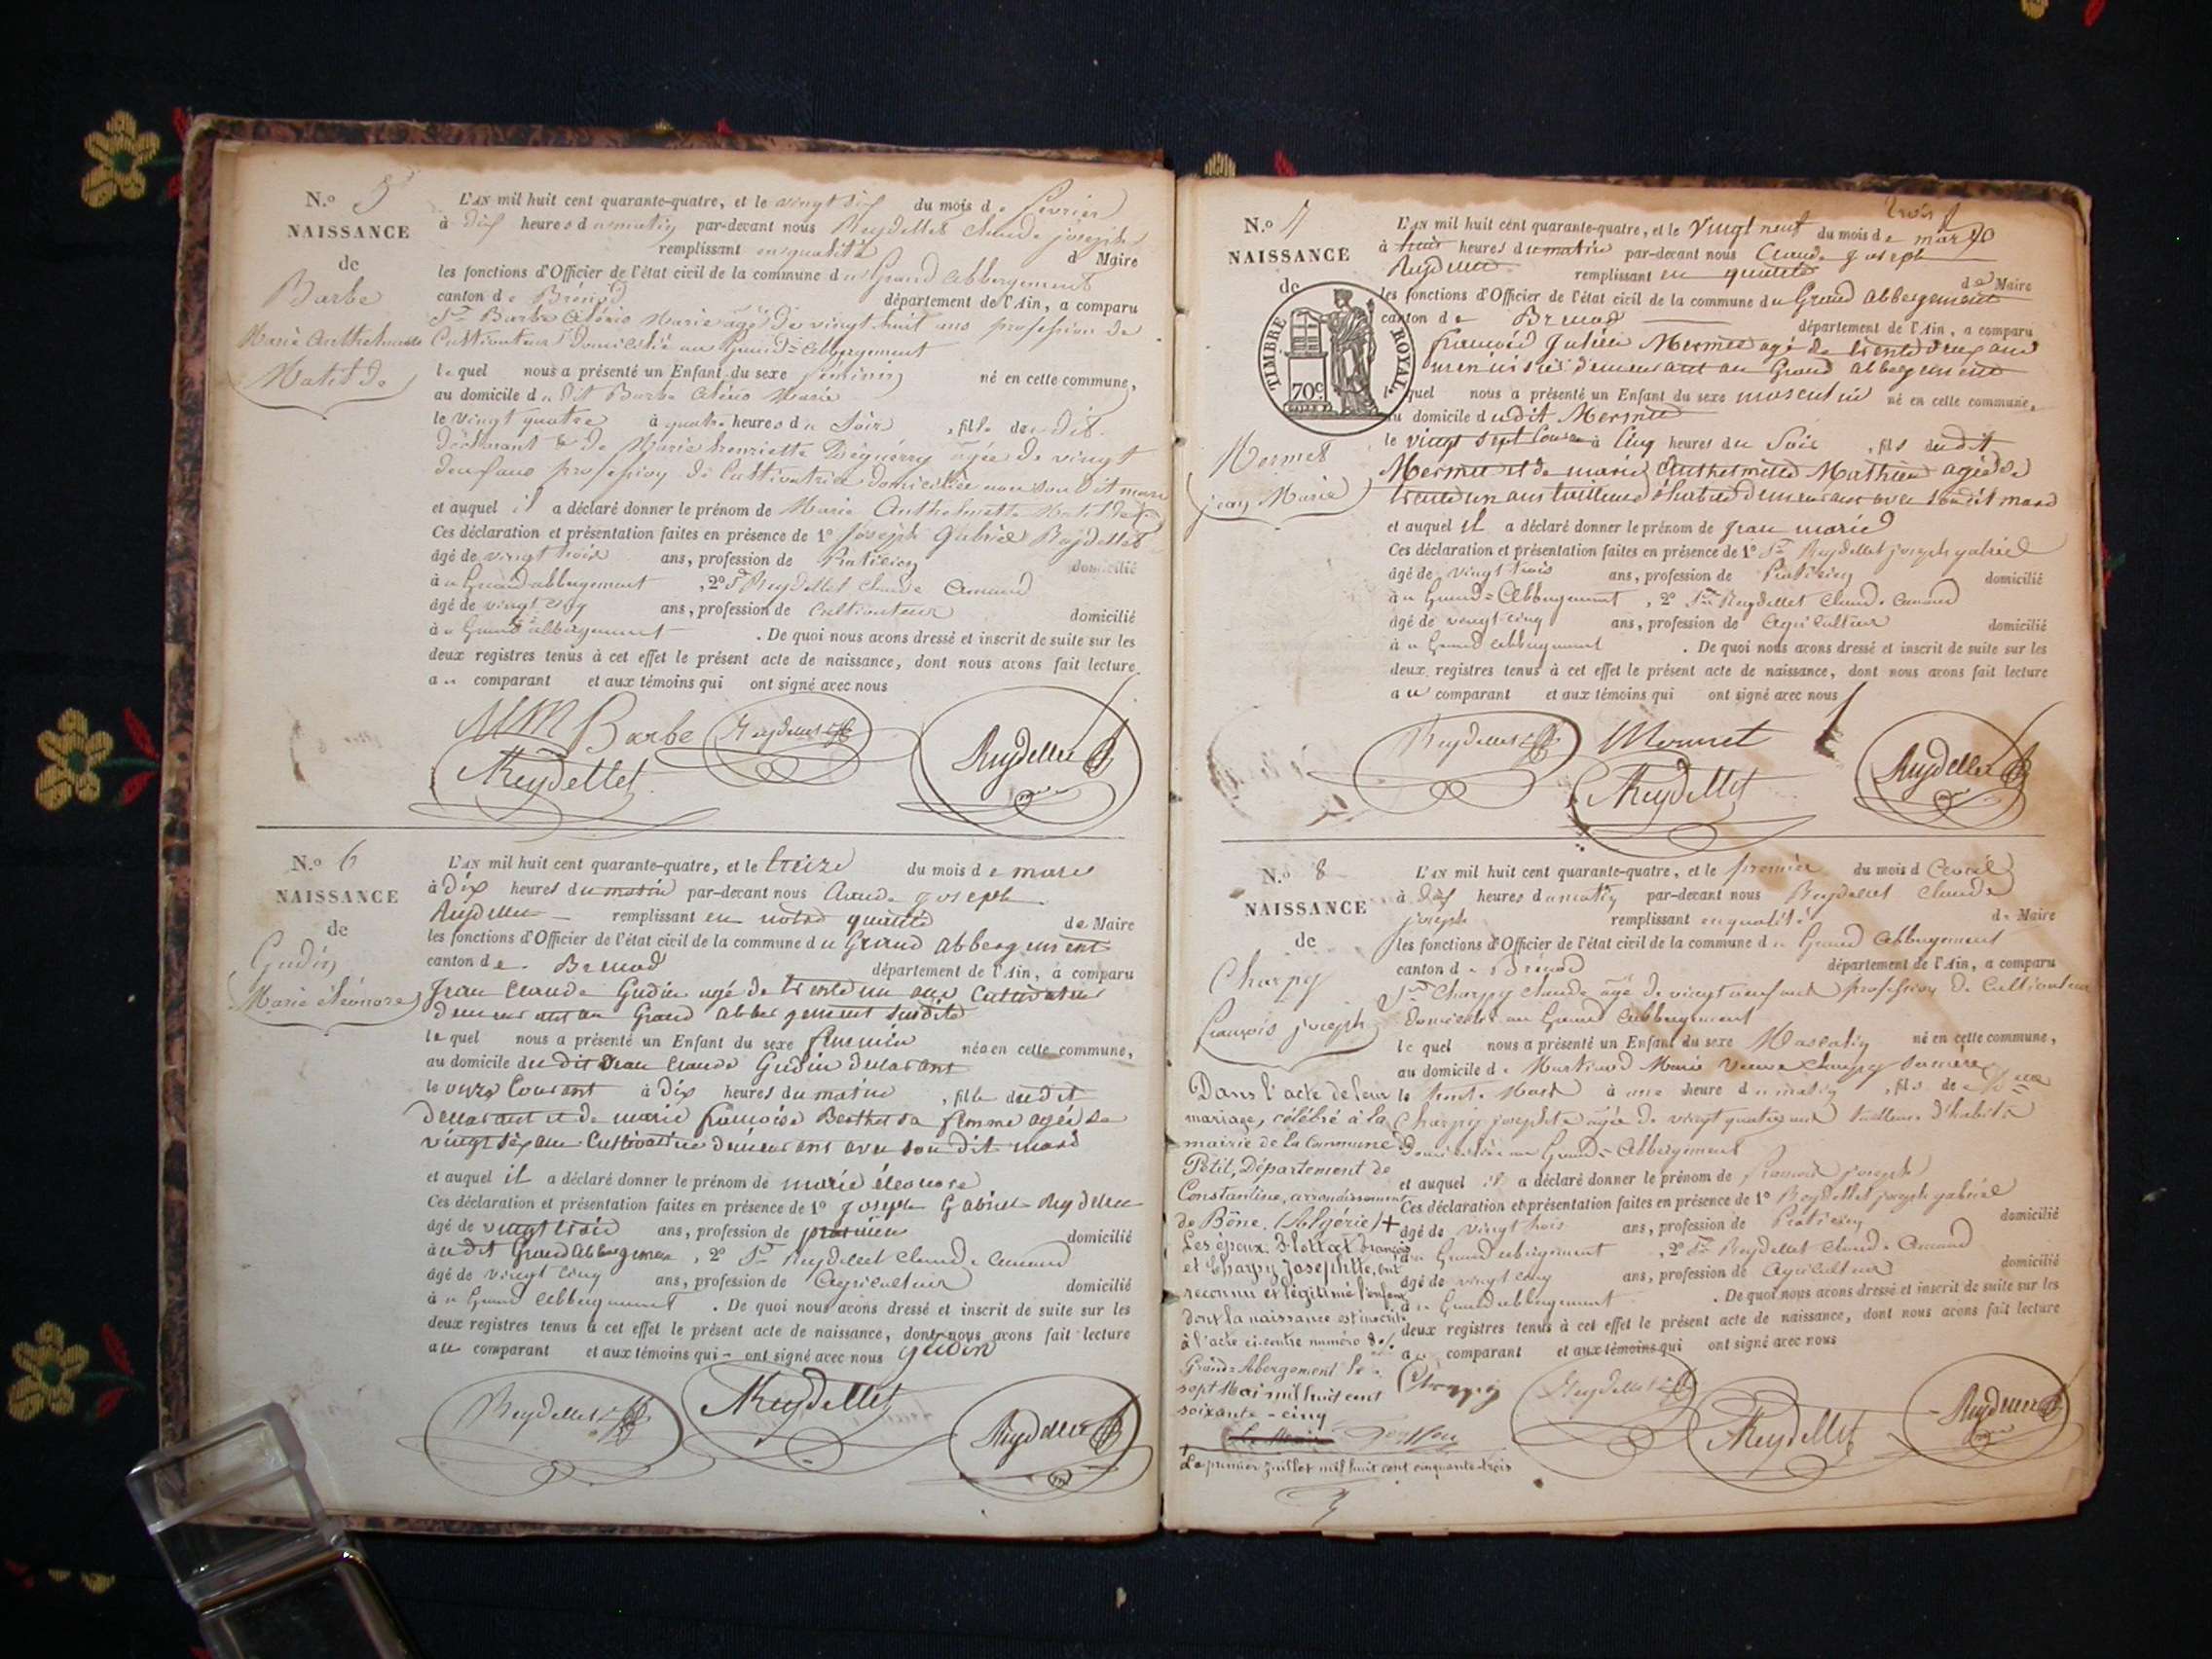 N.o 5
NAISSANCE
de
Barbe
Marie Anthelmette
Matilde
L'AN mil huit cent quarante-quatre, et le vingt six du mois de février
à dix heures du matin par-devant nous Reydellet Claude joseph
remplissant en qualité de Maire
les fonctions d'Officier de l'état civil de la commune du Grand Abbergement
canton de Brénod département de l'Ain, a comparu
Sr Barbe Marie âgé de vingt huit ans profession de
Cultivateur domicilié au Grand=Abbergement
lequel nous a présenté un Enfant du sexe féminin né en cette commune,
au domicile du dit Barbe Marie
le vingt quatre à quatre heures du Soir, fille du dit
déclarant et de Marie henriette âgée de vingt
deux ans profession de Cultivatrice domiciliée avec son dit mari
et auquel il a déclaré donner le prénom de Marie Anthelmette Matilde
Ces déclaration et présentation faites en présence de 1o Joseph Gabriel Reydellet
âgé de vingt trois ans, profession de Praticien domicilié
au Grand abbergement, 2o Sr Reydellet Claude Amand
âgé de vingt cinq ans, profession de Cultivateur domicilié
au Grand abbergement. De quoi nous avons dressé et inscrit de suite sur les
deux registres tenus à cet effet le présent acte de naissance, dont nous avons fait lecture
au comparant et aux témoins qui ont signé avec nous
MM Barbe Reydellet Reydellet
Reydellet
N.o 6
NAISSANCE
de
Gudin
Marie éléonore
L'AN mil huit cent quarante-quatre, et le treize du mois de mars
à dix heures du matin par-devant nous Claude joseph
Reydellet remplissant en notre qualité de Maire
les fonctions d'Officier de l'état civil de la commune du Grand abbergement
canton de Brenod département de l'Ain, a comparu
Jean Claude Gudin agé de trente un ans Cultivateur
demeurant au Grand abbergement susdit
lequel nous a présenté un Enfant du sexe feminin née en cette commune,
au domicile du dit Jean Claude Gudin declarant
le onze Courant à dix heures du matin, fille du dit
declarant et de marie françoise Berthet sa femme agée de
vingt six ans Cultivatrice demeurant avec son dit mari
et auquel il a déclaré donner le prénom de marie éléonore
Ces déclaration et présentation faites en présence de 1o joseph Gabriel Reydellet
âgé de vingt trois ans, profession de praticien domicilié
au dit Grand Abbergement, 2o Sr Reydellet Claude Amand
âgé de vingt cinq ans, profession de Agriculteur domicilié
au Grand Abbergement. De quoi nous avons dressé et inscrit de suite sur les
deux registres tenus à cet effet le présent acte de naissance, dont nous avons fait lecture
au comparant et aux témoins qui ont signé avec nous Gudin
Reydellet Reydellet Reydellet
N.o 7
NAISSANCE
de
TIMBRE ROYAL
70c
Mermet
jean Marie
trois
L'AN mil huit cent quarante-quatre, et le Vingt neuf du mois de mars
à heures du matin par-devant nous Claude joseph
Reydellet remplissant en qualité de Maire
les fonctions d'Officier de l'état civil de la commune du Grand abbergement
canton de Brenod département de l'Ain, a comparu
françois Julien Mermet agé de trente deux ans
menuisier demeurant au Grand abbergement
lequel nous a présenté un Enfant du sexe masculin né en cette commune,
au domicile du dit Mermet
le vingt sept Courant à Cinq heures du Soir, fils du dit
Mermet et de marie Anthelmette Mathieu agée de
trente un ans tailleuse d'habits demeurant avec son dit mari
et auquel il a déclaré donner le prénom de Jean marie
Ces déclaration et présentation faites en présence de 1o Sr Reydellet joseph gabriel
âgé de vingt trois ans, profession de Praticien domicilié
au Grand=Abbergement, 2o Sr Reydellet Claude Amand
âgé de vingt cinq ans, profession de Agriculteur domicilié
au Grand abbergement. De quoi nous avons dressé et inscrit de suite sur les
deux registres tenus à cet effet le présent acte de naissance, dont nous avons fait lecture
au comparant et aux témoins qui ont signé avec nous
Reydellet Mermet Reydellet
Reydellet
N.o 8
NAISSANCE
de
Charpy
françois joseph
L'AN mil huit cent quarante-quatre, et le premier du mois d Avril
à dix heures du matin par-devant nous Reydellet Claude
joseph remplissant en qualité de Maire
les fonctions d'Officier de l'état civil de la commune du Grand Abbergement
canton de Brénod département de l'Ain, a comparu
Sr Charpy Claude âgé de vingt neuf ans profession de Cultivateur
domicilié au Grand Abbergement
lequel nous a présenté un Enfant du sexe Masculin né en cette commune,
au domicile de Martinod Marie Veuve Charpy sa mère
le trente Mars à une heure du matin, fils de
Charpy josephte agée de vingt quatre ans tailleuse d'habits
domiciliée au Grand=Abbergement
et auquel il a déclaré donner le prénom de françois joseph
Ces déclaration et présentation faites en présence de 1o Reydellet joseph gabriel
âgé de vingt trois ans, profession de Praticien domicilié
au Grand abbergement, 2o Sr Reydellet Claude Amand
âgé de vingt cinq ans, profession de Agriculteur domicilié
au Grand abbergement. De quoi nous avons dressé et inscrit de suite sur les
deux registres tenus à cet effet le présent acte de naissance, dont nous avons fait lecture
au comparant et aux témoins qui ont signé avec nous
Charpy Reydellet Reydellet Reydellet
Dans l'acte de leur
mariage, célébré à la
mairie de la Commune de
Petit, Département de
Constantine, arrondissement
de Bône, (Algérie) +
Les époux françois
et Charpy Josephte, ont
reconnu et légitimé l'enfant
dont la naissance est inscrite
à l'acte ci-contre numéro 8./.
Grand=Abergement le
sept Mai mil huit cent
soixante-cinq
Le Maire
+
Le premier Juillet mil huit cent cinquante-trois